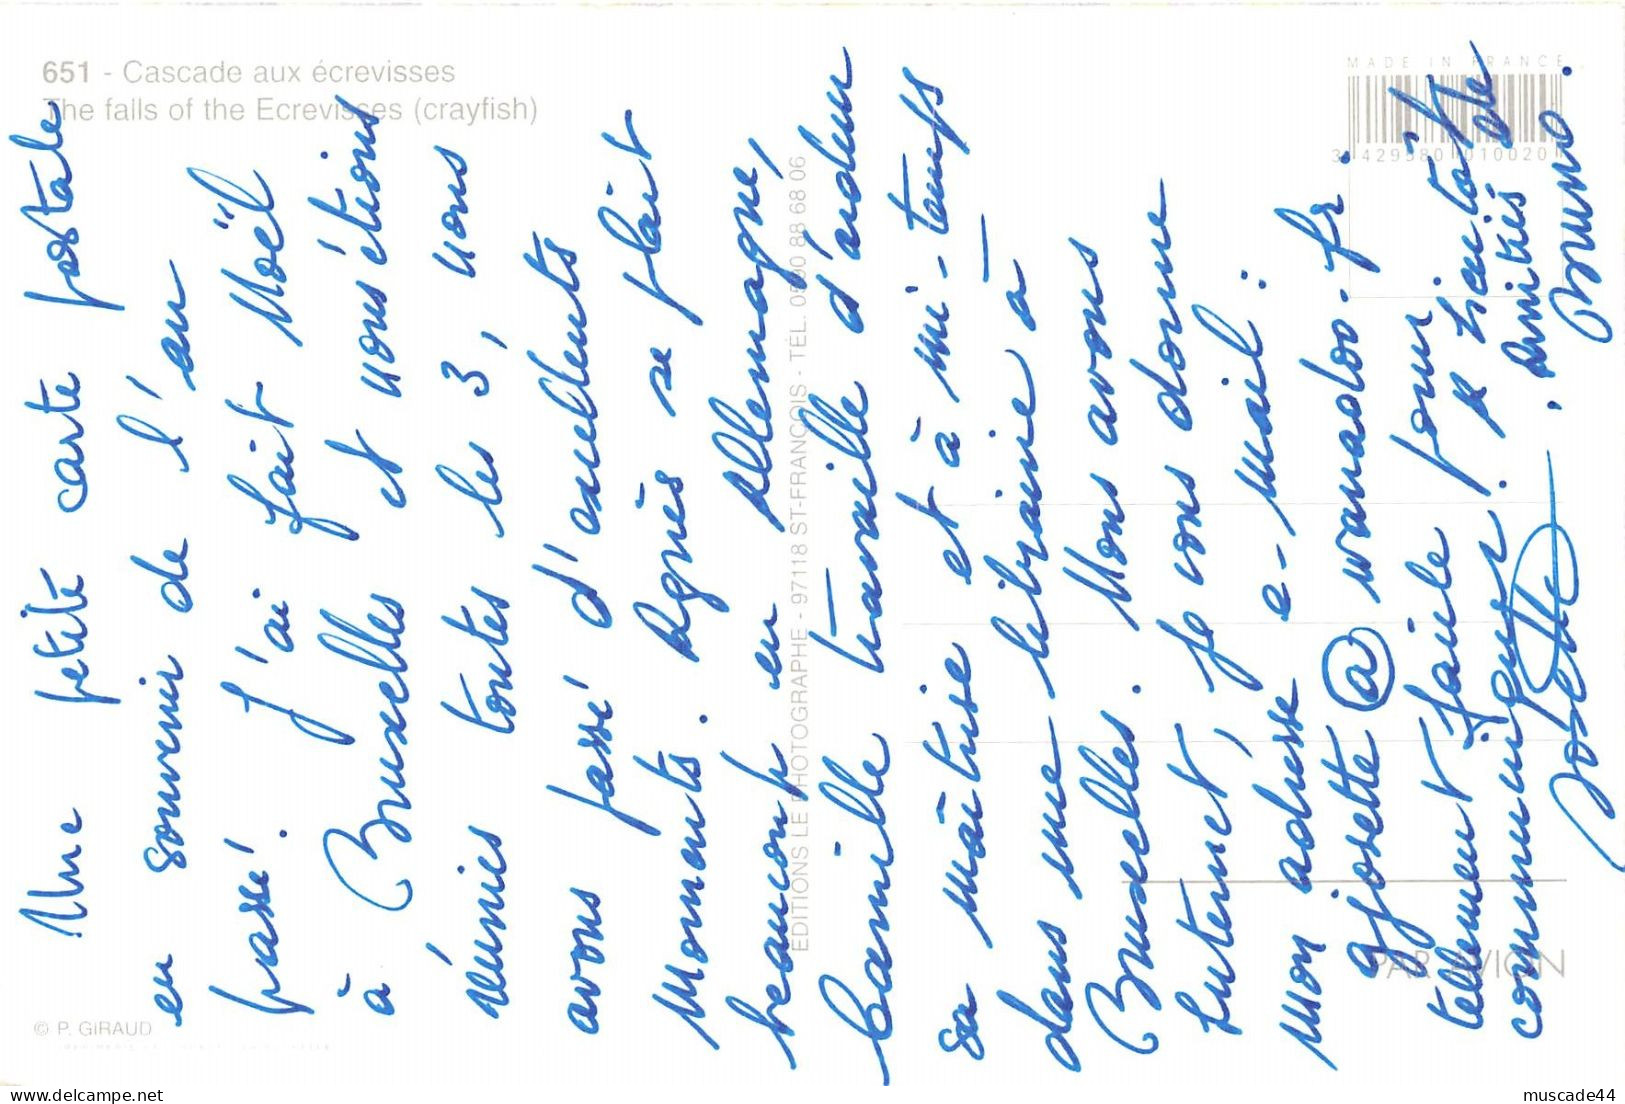 651 - Cascade aux écrevisses
The falls of the Ecrevisses (crayfish)
MADE IN FRANCE
3 429580 010020
EDITIONS LE PHOTOGRAPHE - 97118 ST-FRANÇOIS - TÉL. 0590 88 68 06
© P. GIRAUD
PAR AVION
Une petite carte postale
en souvenir de l'an
passé. J'ai fait Noël
à Bruxelles et nous étions
réunies toutes les 3, nous
avons passé d'excellents
moments. Agnès se plait
beaucoup en Allemagne,
Camille travaille d'ardeur
sa maîtrise et à mi-temps
dans une librairie à
Bruxelles. Nous avons
Internet, je vous donne
mon adresse e-mail :
gjosette@wanadoo.fr
tellement facile pour
communiquer. À bientôt
Josette. Amitiés de
Bruno.
muscade44